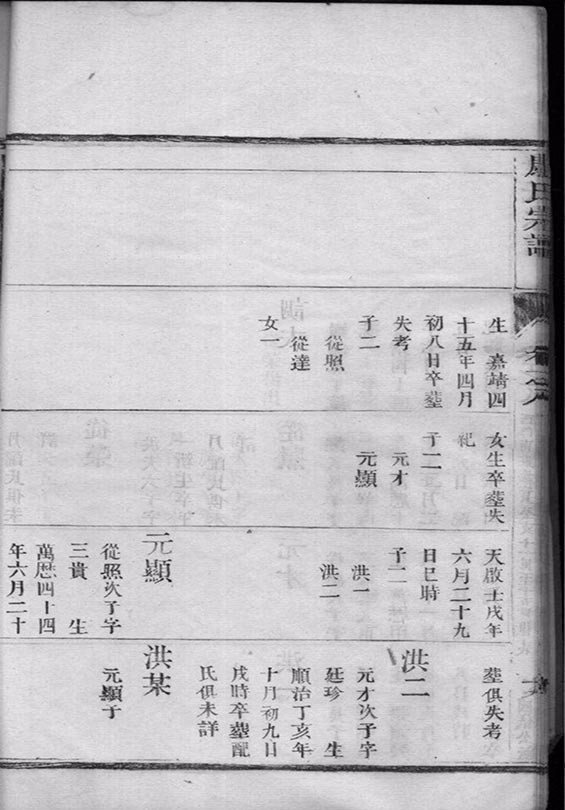 氏宗譜
生 嘉靖四
十五年四月
初八日卒塟
失考
子二
從照
從達
女一
生卒塟失
祀
子二
元才
元顯
天啟壬戌年
六月二十九
日巳時
子二
洪一
洪二
元顯
從照次子字
三貴 生
萬厯四十四
年六月二十
塟俱失考
洪二
元才次子字
廷珍 生
順治丁亥年
十月初九日
戌時卒塟配
氏俱未詳
洪某
元顯子